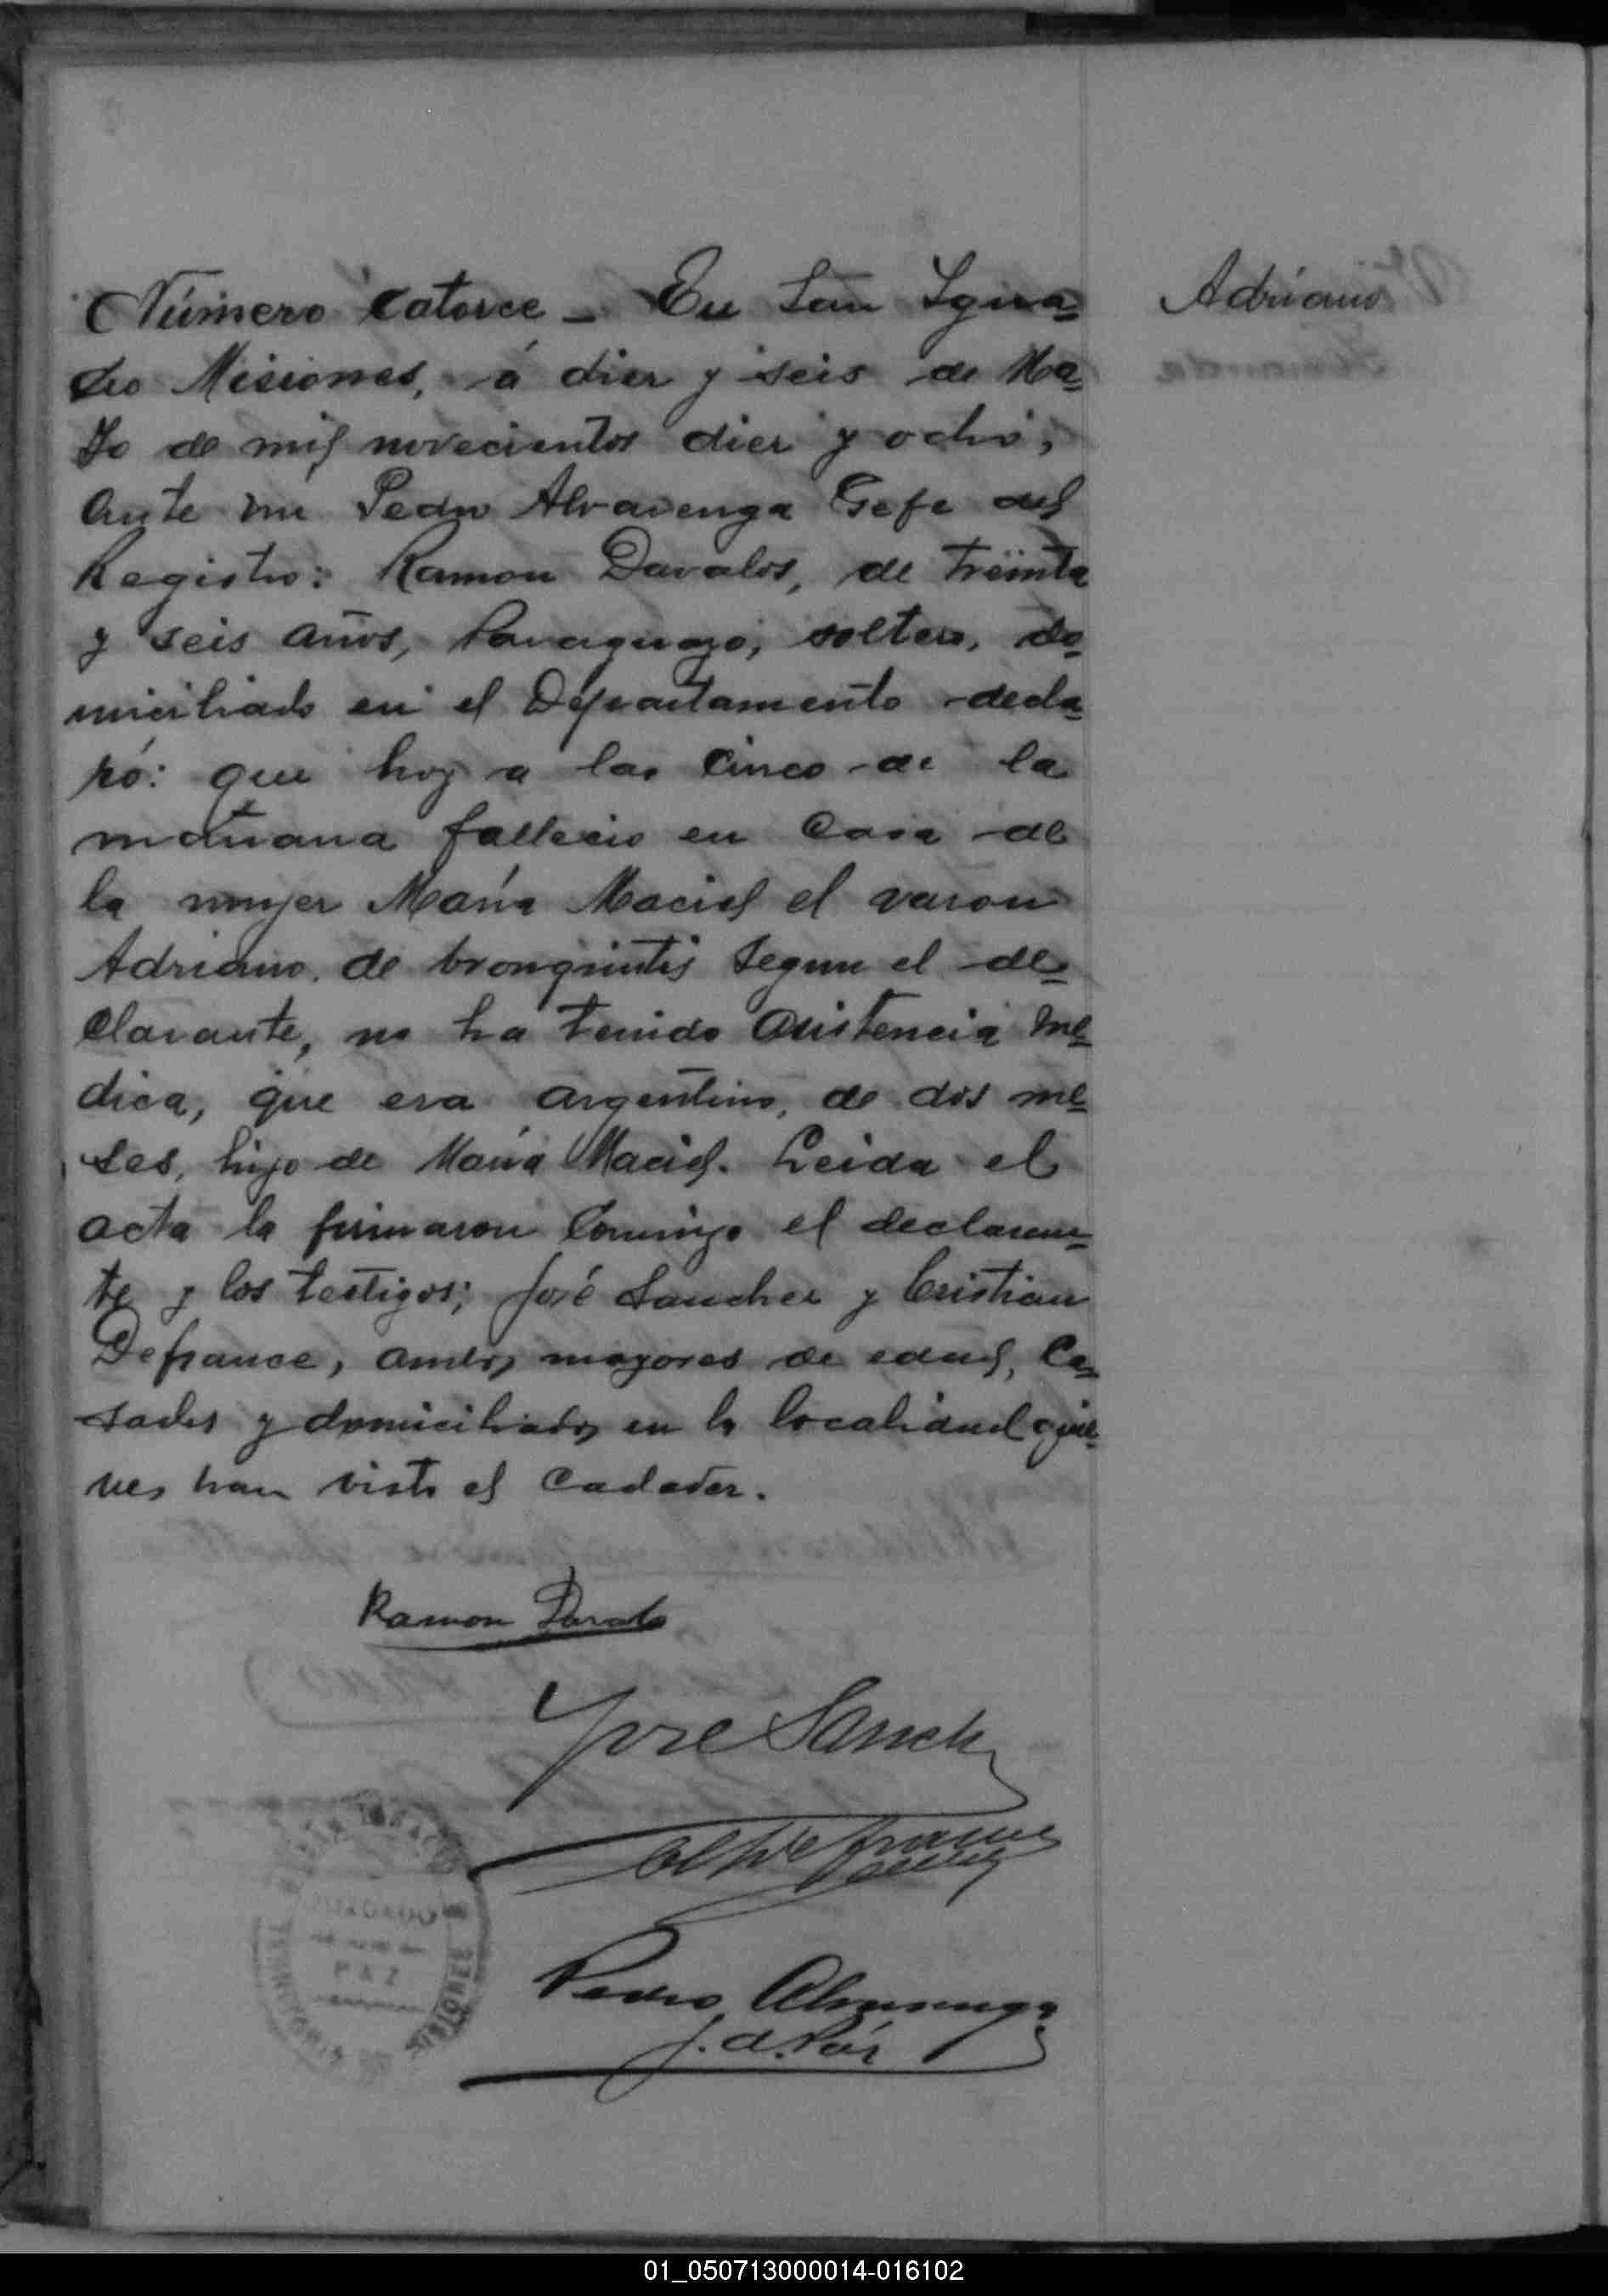 Número Catorce - En San Igna-
cio Misiones, á diez y seis de Ma-
yo de mil novecientos diez y ocho,
ante mi Pedro Alvarenga Gefe del
Registro: Ramon Davalos, de treinta
y seis años, Paraguayo, soltero, do-
miciliado en el Departamento decla-
ró: que hoy a las cinco de la
mañana fallecio en casa de
la mujer María Maciel el varon
Adriano, de bronquitis segun el de-
clarante, no ha tenido asistencia me-
dica, que era argentino, de dos me-
ses, hijo de María Maciel. Leida el
acta la firmaron conmigo el declaran-
te y los testigos; José Sanchez y Cristian
Defrance, ambos mayores de edad, ca-
sados y domiciliados en la localidad quie-
nes han visto el cadaver.
Adriano
Ramon Davalo
Jose Sanch
Defrance
Pedro Alvarenga
J. d. Páz
SAN IGNACIO
JUZGADO
PAZ
TERRITORIO
MISIONES
01_050713000014-016102